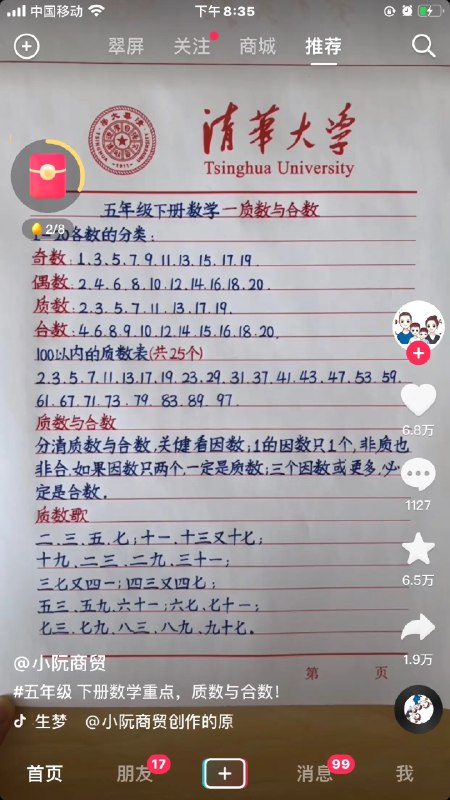 中国移动
下午8:35
翠屏
关注
商城
推荐
清华大学
Tsinghua University
五年级下册数学—质数与合数
2/8
1-20各数的分类:
奇数:1.3.5.7.9.11.13.15.17.19.
偶数:2.4.6.8.10.12.14.16.18.20.
质数:2.3.5.7.11.13.17.19.
合数:4.6.8.9.10.12.14.15.16.18.20.
100以内的质数表(共25个)
2.3.5.7.11.13.17.19.23.29.31.37.41.43.47.53.59.
61.67.71.73.79.83.89.97.
质数与合数
分清质数与合数,关健看因数;1的因数只1个,非质也
非合.如果因数只两个,一定是质数;三个因数或更多,必
定是合数.
质数歌
二、三、五、七;十一、十三又十七;
十九、二三、二九、三十一;
三七又四一;四三又四七;
五三、五九、六十一;六七、七十一;
七三、七九、八三、八九、九十七.
第 页
6.8万
1127
6.5万
1.9万
@小阮商贸
#五年级 下册数学重点，质数与合数!
生梦 @小阮商贸创作的原
首页
朋友
17
消息
99
我